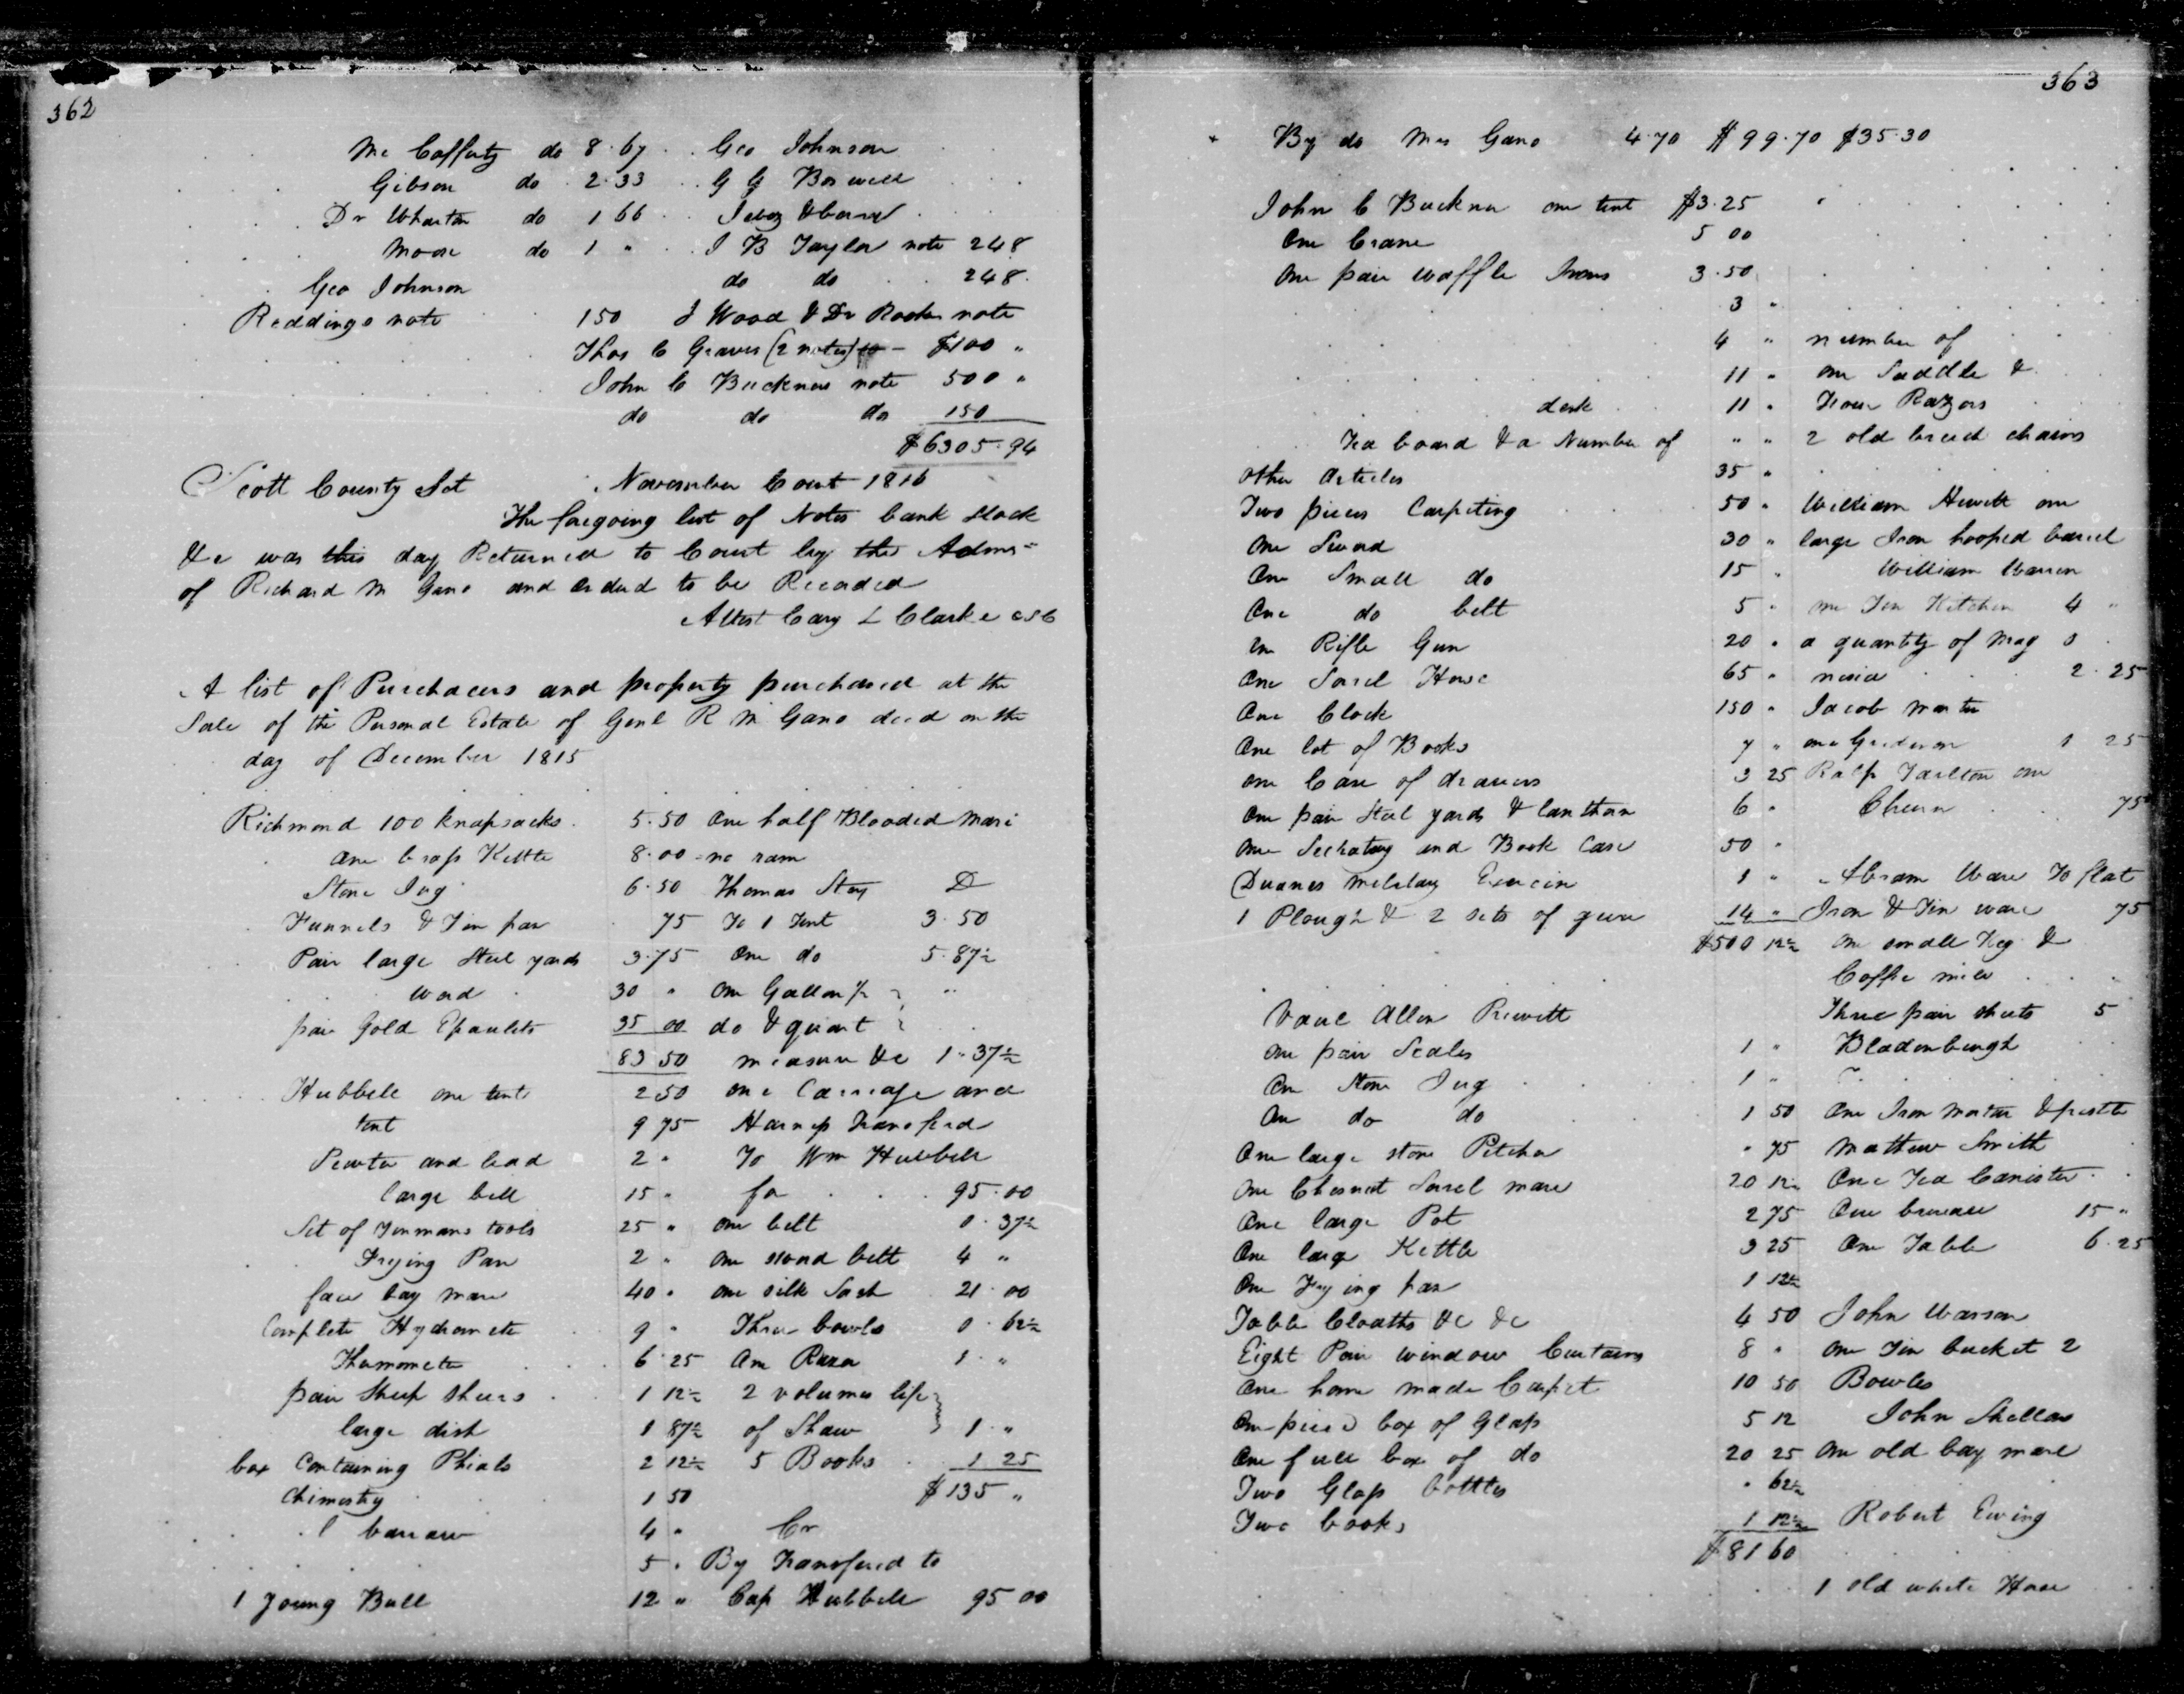 362
Mc Cafferty do 8.67 . . Geo Johnson
Gibson do 2.33 . . G G Boswell
Dr Wharton do 1 66
Moore do 1 " . . J B Taylor note 248
Geo Johnson do do . . 248.
Reddings note 150 J Wood & Dr note
Thos C Graves (2 notes) - $100 "
John C Buckners note 500 "
do do do 150
$6305.94
Scott County Sct November Court 1816
The foregoing list of Notes bank Stock
&c was this day Returned to Court by the Admrs
of Richard M Gano and ordered to be Recorded
Attest Cary L Clarke csc
A list of Purchacers and property purchased at the
Sale of the Personal Estate of Genl R M Gano decd on the
day of December 1815
Richmond 100 knapsacks . 5.50 One half Blooded Mare
One brass Kettle 8.00 ne ram
Stone Jug 6.50 Thomas Story D
Funnels & Tin pan 75 To 1 Tent 3.50
Pair large Steel yards 3.75 One do 5.87½
30 " One Gallon ½
pair Gold Epaulets 35 00 do & quart
83 50 measure &c 1.37½
Hubbell one tent 2 50 one Carriage and
tent 9 75 Harness Transferd
Pewter and lead 2 " To Wm Hubbell
large bell 15 " for . . . 95.00
Set of Tinmans tools 25 " one belt 0.37½
Frying Pan 2 " one sword belt 4 "
face bay mare 40 " one silk Sash 21.00
Complete Hydrometer 9 " Three bowls 0.62½
Thermometer 6.25 One Razor 1 . "
pair Sheep Shears . 1 12½ 2 volumes life
large dish 1 87½ of Shaw 1 . "
box Containing Phials 2 12½ 5 Books . 1 25
Chimestry 1 50 $135 "
barrow 4 " Cr
5 . By Transfered to
1 young Bull 12 " Cap Hubbell 95 00
363
By do Mrs Gano 4.70 $99.70 $35.30
John C Buckner one tent $3.25
One Crane 5 00
One pair waffle Irons 3.50
3 "
4 " number of
11 " one Saddle &
desk 11 " Four Razors
Tea board & a Number of " " 2 old breech chains
other articles 35 "
Two pieces Carpeting 50 " William Hewett one
One Sword 30 " large Iron hooped barrel
One Small do 15 " William Warren
One do belt 5 " one Tin Kitchen 4 "
Rifle Gun 20 " a quantity of Mag
One Sorel Horse 65 " nesia . . 2.25
One Clock 150 "
One lot of Books 7 " one Gridiron 1 25
one Case of drawers 3 25 Ralp Tarlton one
One pair Steel yards & lanthorn 6 " Churn . . 75
One Secratary and Book Case 50 "
Duanes Melatary Exercise 1 " Abram Ware To flat
1 Plough & 2 sets of gear 14 " Iron & Tin ware 75
$500 12½ One small Keg &
Coffie mill
Allen Prewitt Three pair sheets 5
One pair Scales 1 " Bladenburgh
One Stone Jug 1 "
One do do 1 50 One Iron Mortar & pestle
One large stone Pitcher " 75 Mathew Smith
One Chesnut Sorel mare 20 12½ One Tea Canister
One large Pot 2 75 One bureau 15 "
One large Kettle 3 25 One Table 6.25
One Frying pan 1 12½
Table Cloaths &c &c 4 50 John Warson
Eight Pair window Curtains 8 " One Tin bucket 2
One home made Carpet 10 50 Bowles
box of Glass 5 12 John
One full box of do 20 25 One old bay mare
Two Glass bottles " 62½
Two books 1 12½ Robert Ewing
$81 60
1 old white Horse